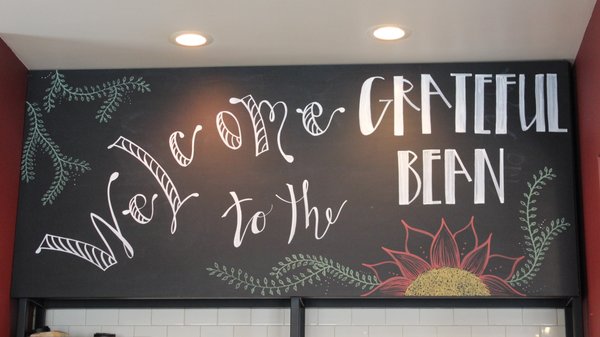 Welcome
to the
GRATEFUL
BEAN